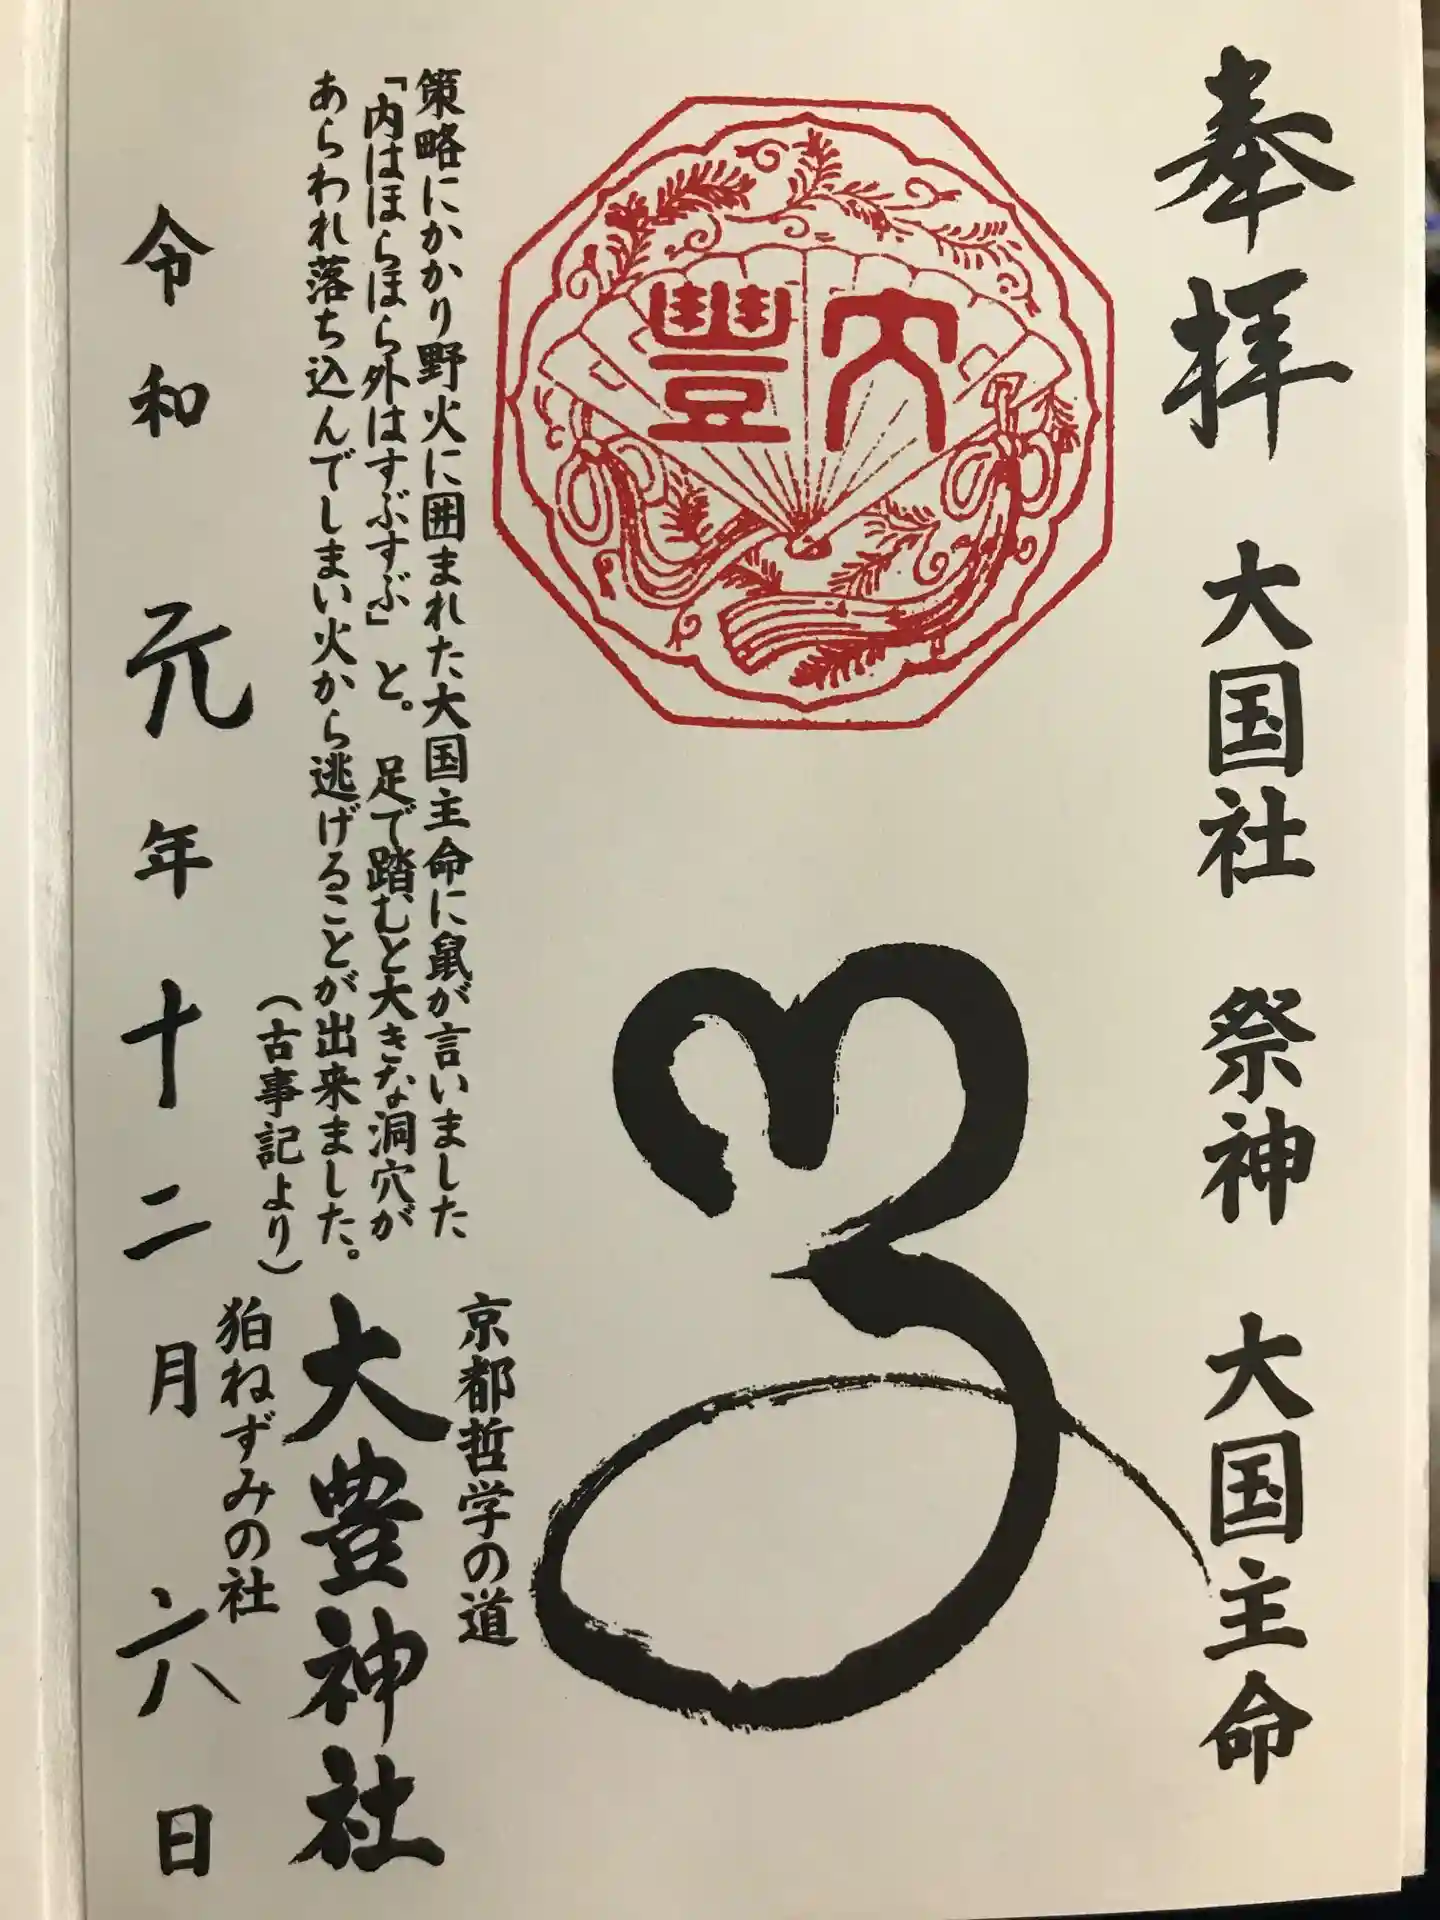 奉拝　大国社　祭神　大国主命
大豊
策略にかかり野火に囲まれた大国主命に鼠が言いました
「内はほらほら外はすぶすぶ」と。　足で踏むと大きな洞穴が
あらわれ落ち込んでしまい火から逃げることが出来ました。
（古事記より）
京都哲学の道
大豊神社
狛ねずみの社
令和元年十二月六日